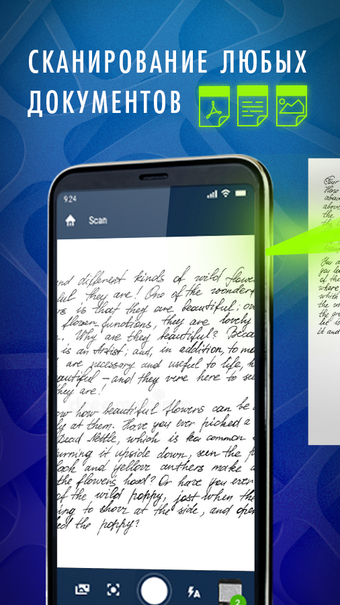 СКАНИРОВАНИЕ ЛЮБЫХ
ДОКУМЕНТОВ
9:24
Scan
nd different kinds of wild flowe
ful they are! One of the wonder
rs is that they are beautiful. ou
flower functions, they are lovely
Why are they beautiful? Beca
is an Artist; and, in addition, to ma
are necessary and useful to life, h
autiful – and they were here to se
they are!
ow how beautiful flowers can be
y at them. Have you ever picked a
Dead Nettle, which is common
urning it upside down, seen the p
lack and yellow anthers make a
the flowers hood? Or have you ever
of the wild poppy, just when th
ing to show at the side, and open
ed the poppy?
2